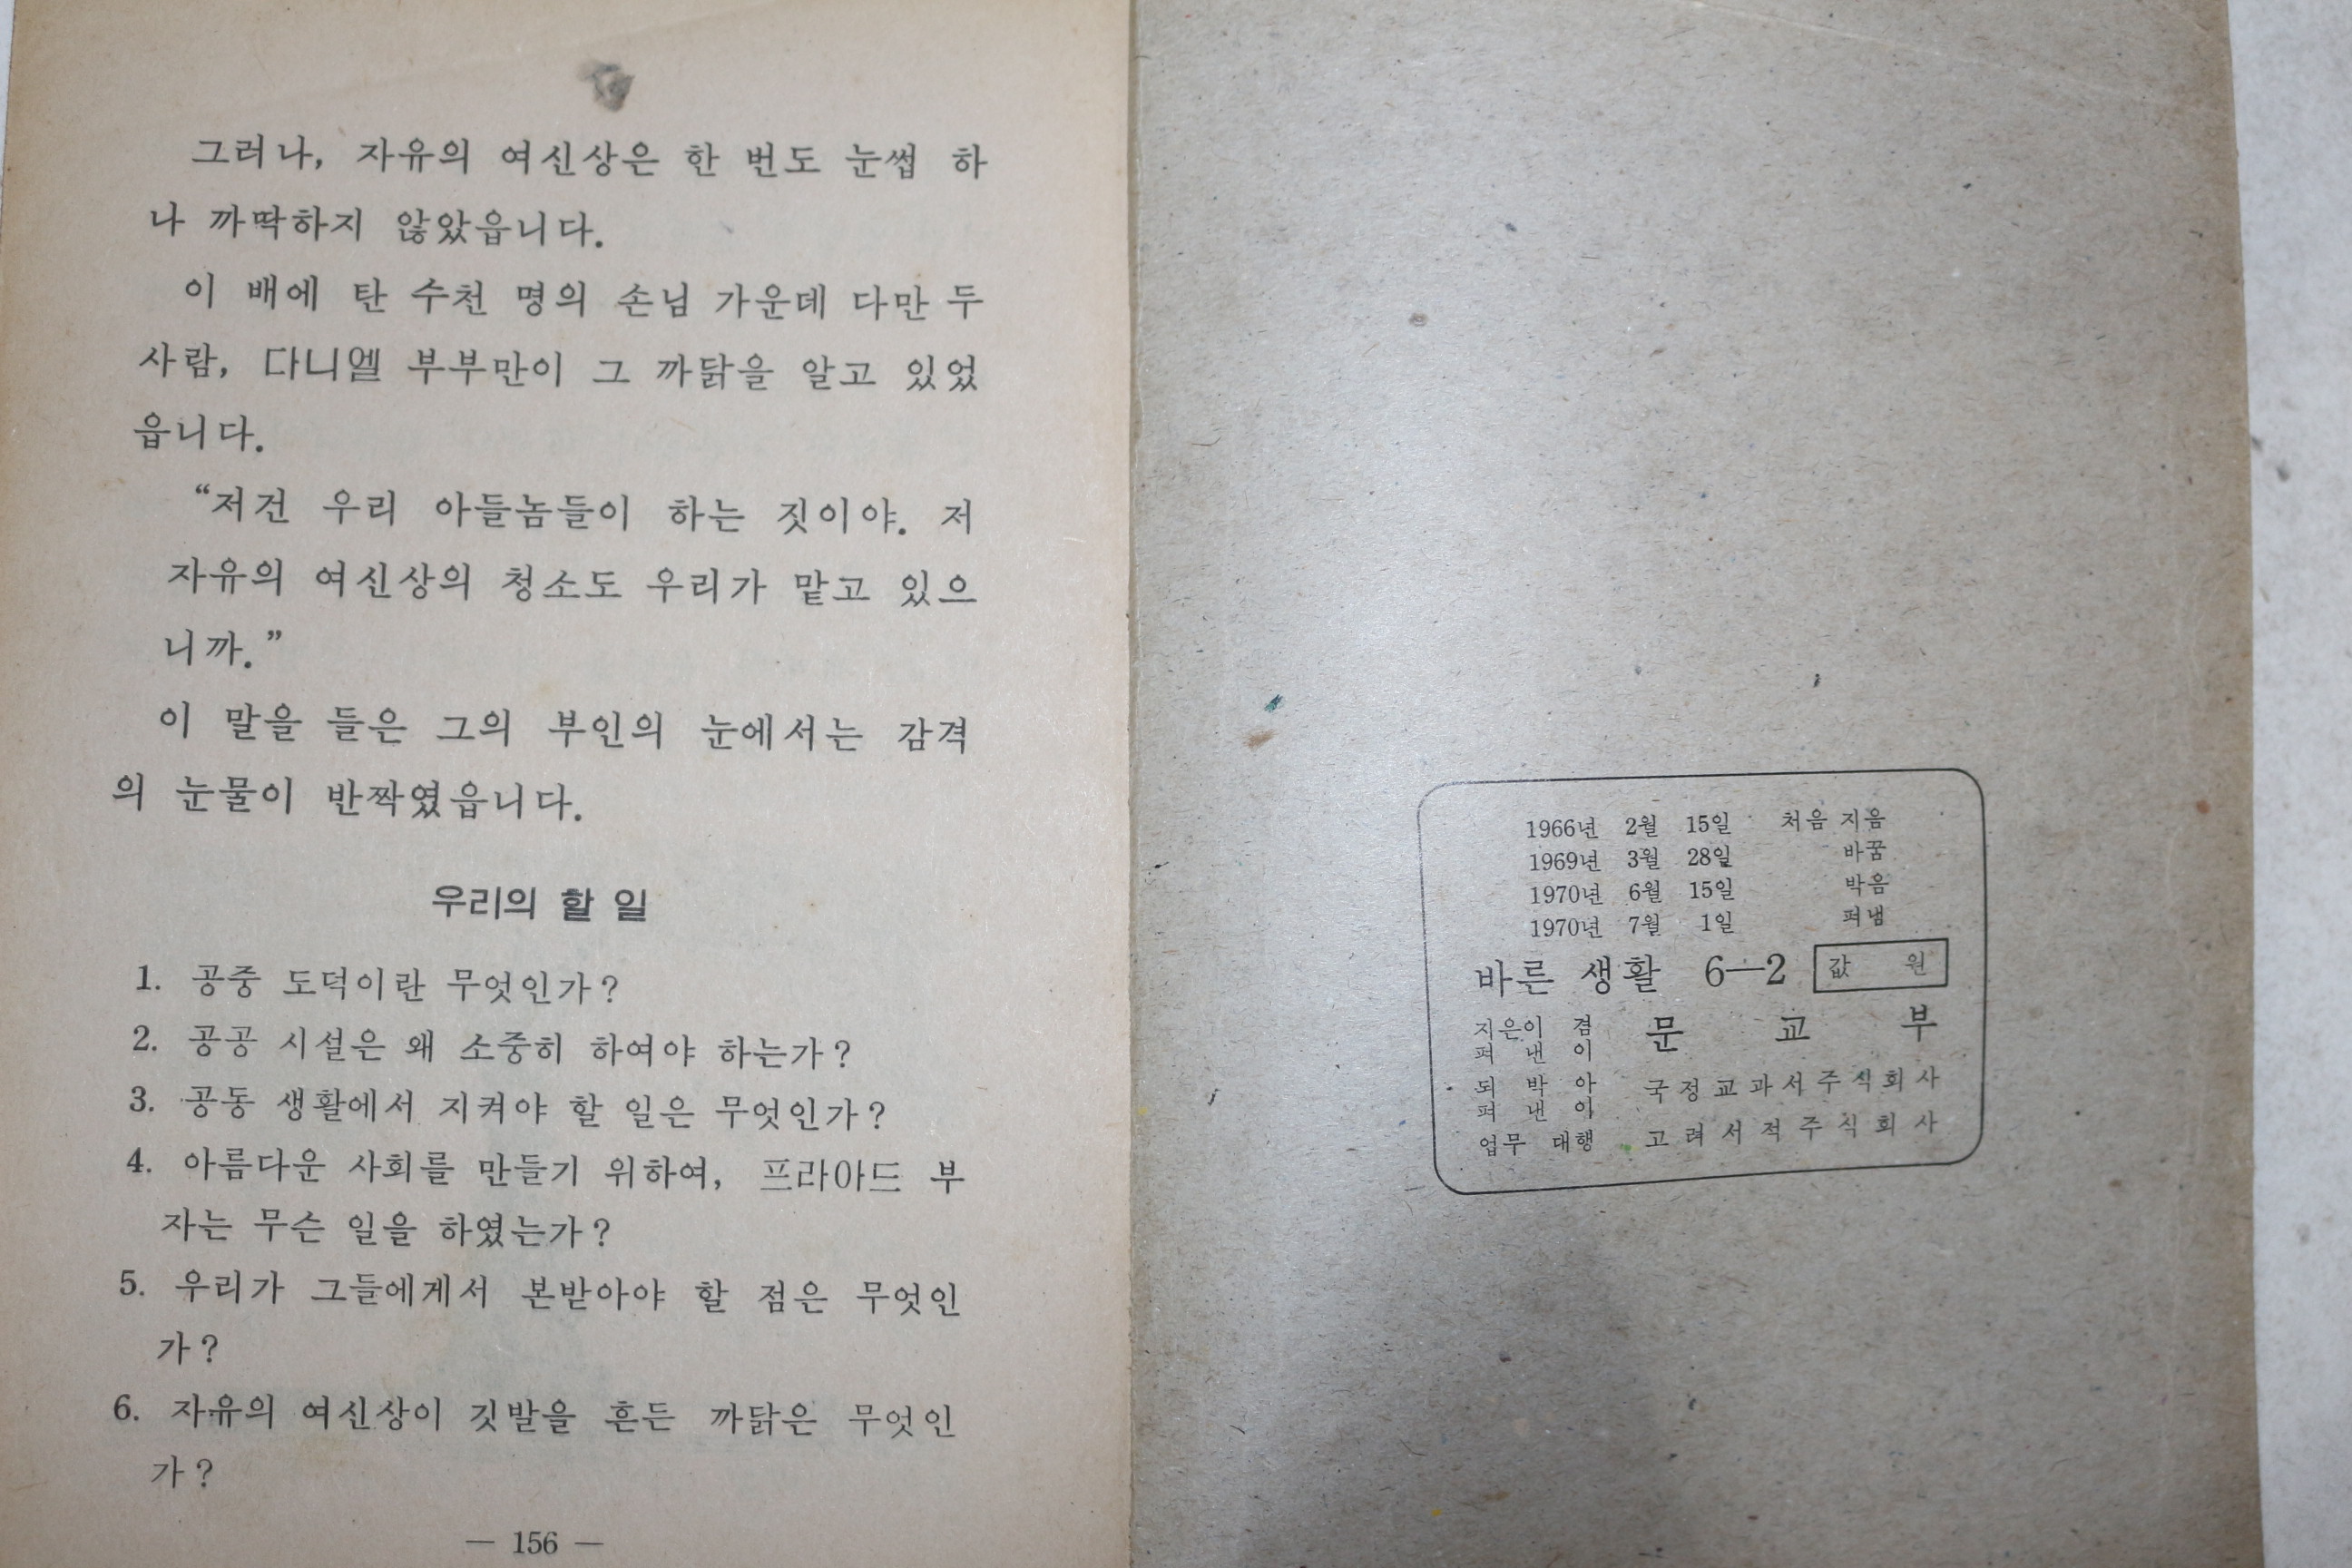 그러나, 자유의 여신상은 한 번도 눈썹 하
나 까딱하지 않았읍니다.
이 배에 탄 수천 명의 손님 가운데 다만 두
사람, 다니엘 부부만이 그 까닭을 알고 있었
읍니다.
“저건 우리 아들놈들이 하는 짓이야. 저
자유의 여신상의 청소도 우리가 맡고 있으
니까.”
이 말을 들은 그의 부인의 눈에서는 감격
의 눈물이 반짝였읍니다.
우리의 할 일
1. 공중 도덕이란 무엇인가?
2. 공공 시설은 왜 소중히 하여야 하는가?
3. 공동 생활에서 지켜야 할 일은 무엇인가?
4. 아름다운 사회를 만들기 위하여, 프라아드 부
자는 무슨 일을 하였는가?
5. 우리가 그들에게서 본받아야 할 점은 무엇인
가?
6. 자유의 여신상이 깃발을 흔든 까닭은 무엇인
가?
— 156 —
1966년 2월 15일 처음 지음
1969년 3월 28일 바꿈
1970년 6월 15일 박음
1970년 7월 1일 펴냄
바른 생활 6—2 값 원
지은이 겸
펴 낸 이 문 교 부
되 박 아
펴 낸 이 국정교과서주식회사
업무 대행 고려서적주식회사